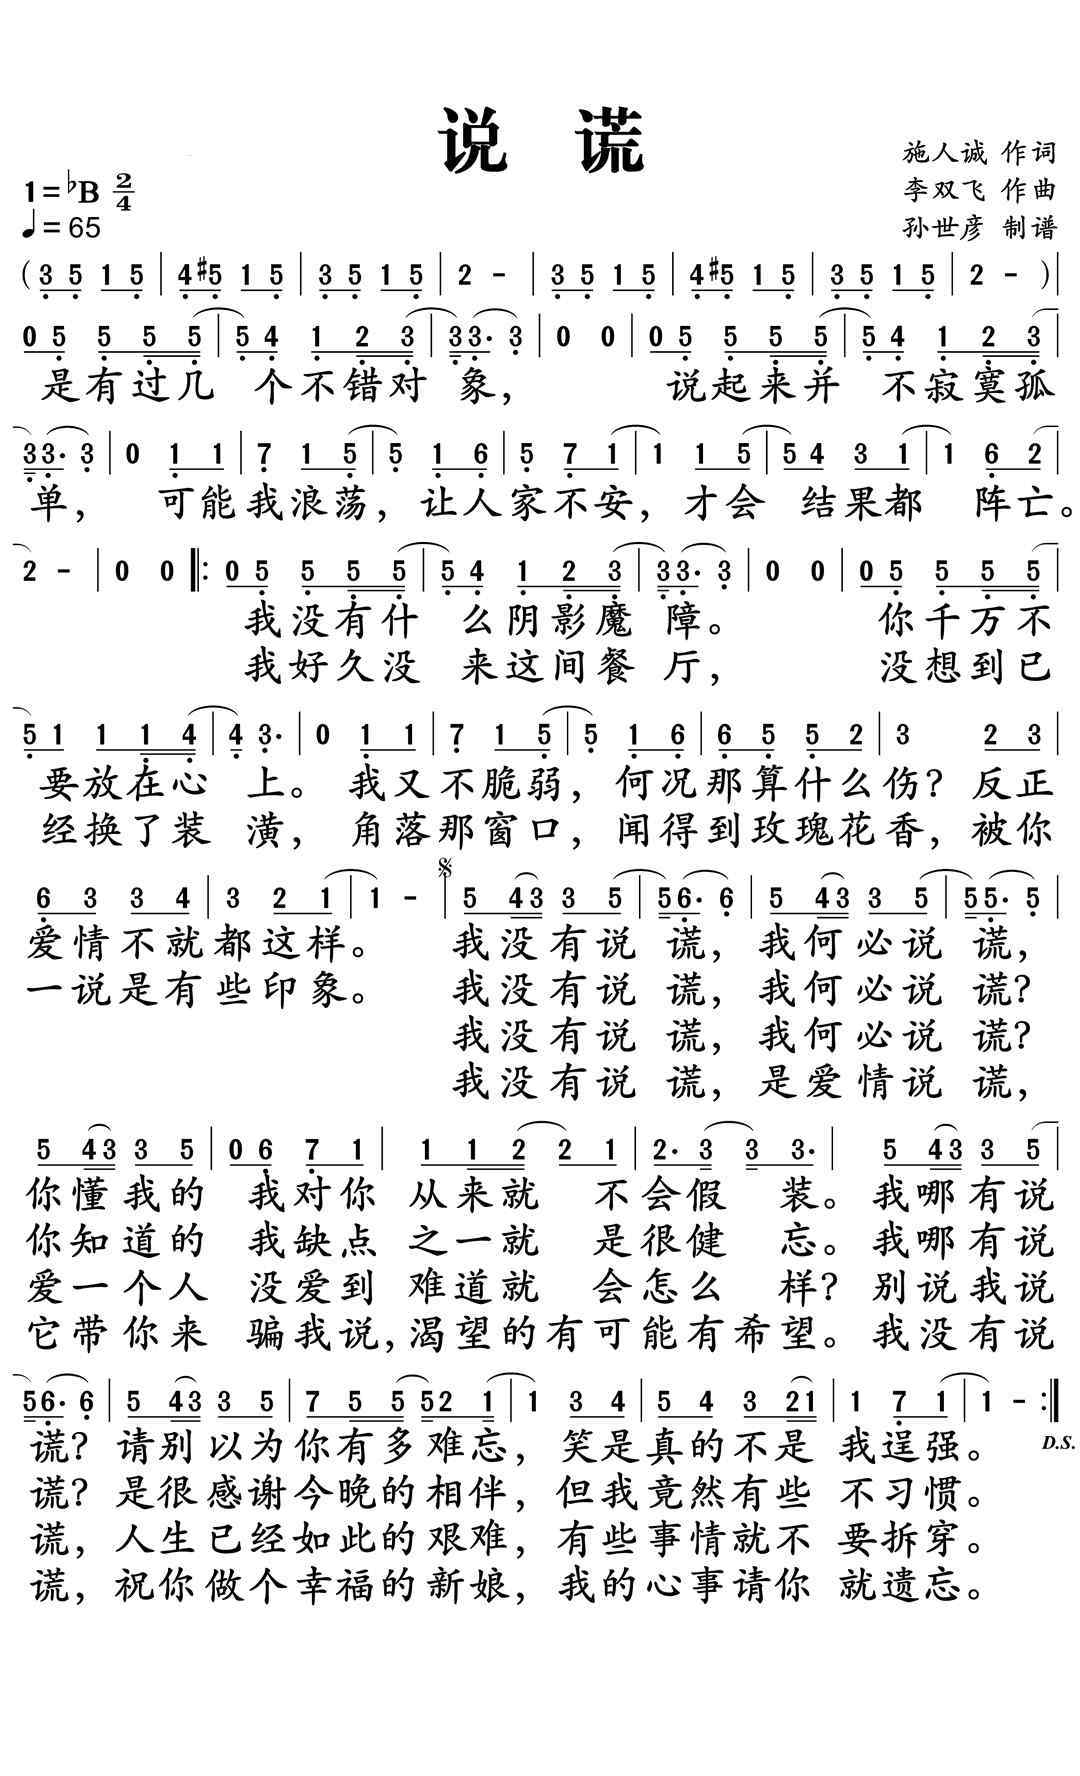 说 谎
施人诚 作词
1=♭B 2/4
李双飞 作曲
♩=65
孙世彦 制谱
(3 5 1 5 | 4 #5 1 5 | 3 5 1 5 | 2 - | 3 5 1 5 | 4 #5 1 5 | 3 5 1 5 | 2 - )|
0 5 5 5 5 | 5 4 1 2 3 | 3 3· 3 | 0 0 | 0 5 5 5 5 | 5 4 1 2 3 |
是有过几 个不错对 象， 说起来并 不寂寞孤
3 3· 3 | 0 1 1 | 7 1 5 | 5 1 6 | 5 7 1 | 1 1 5 | 5 4 3 1 | 1 6 2 |
单， 可能我浪荡，让人家不安，才会 结果都 阵亡。
2 - | 0 0 |: 0 5 5 5 5 | 5 4 1 2 3 | 3 3· 3 | 0 0 | 0 5 5 5 5 |
我没有什 么阴影魔 障。 你千万不
我好久没 来这间餐 厅， 没想到已
5 1 1 1 4 | 4 3· | 0 1 1 | 7 1 5 | 5 1 6 | 6 5 5 2 | 3 2 3 |
要放在心 上。 我又不脆弱，何况那算什么伤？反正
经换了装 潢， 角落那窗口，闻得到玫瑰花香，被你
6 3 3 4 | 3 2 1 | 1 - | 5 4 3 3 5 | 5 6· 6 | 5 4 3 3 5 | 5 5· 5 |
爱情不就都这样。 我没有说 谎，我何必说 谎，
一说是有些印象。 我没有说 谎，我何必说 谎？
我没有说 谎，我何必说 谎？
我没有说 谎，是爱情说 谎，
5 4 3 3 5 | 0 6 7 1 | 1 1 2 2 1 | 2· 3 3 3· | 5 4 3 3 5 |
你懂我的 我对你 从来就 不会假 装。我哪有说
你知道的 我缺点 之一就 是很健 忘。我哪有说
爱一个人 没爱到 难道就 会怎么 样？别说我说
它带你来 骗我说，渴望的有可能有希望。我没有说
5 6· 6 | 5 4 3 3 5 | 7 5 5 5 2 1 | 1 3 4 | 5 4 3 2 1 | 1 7 1 | 1 - :|
谎？请别以为你有多难忘，笑是真的不是 我逞强。
D.S.
谎？是很感谢今晚的相伴，但我竟然有些 不习惯。
谎，人生已经如此的艰难，有些事情就不 要拆穿。
谎，祝你做个幸福的新娘，我的心事请你 就遗忘。